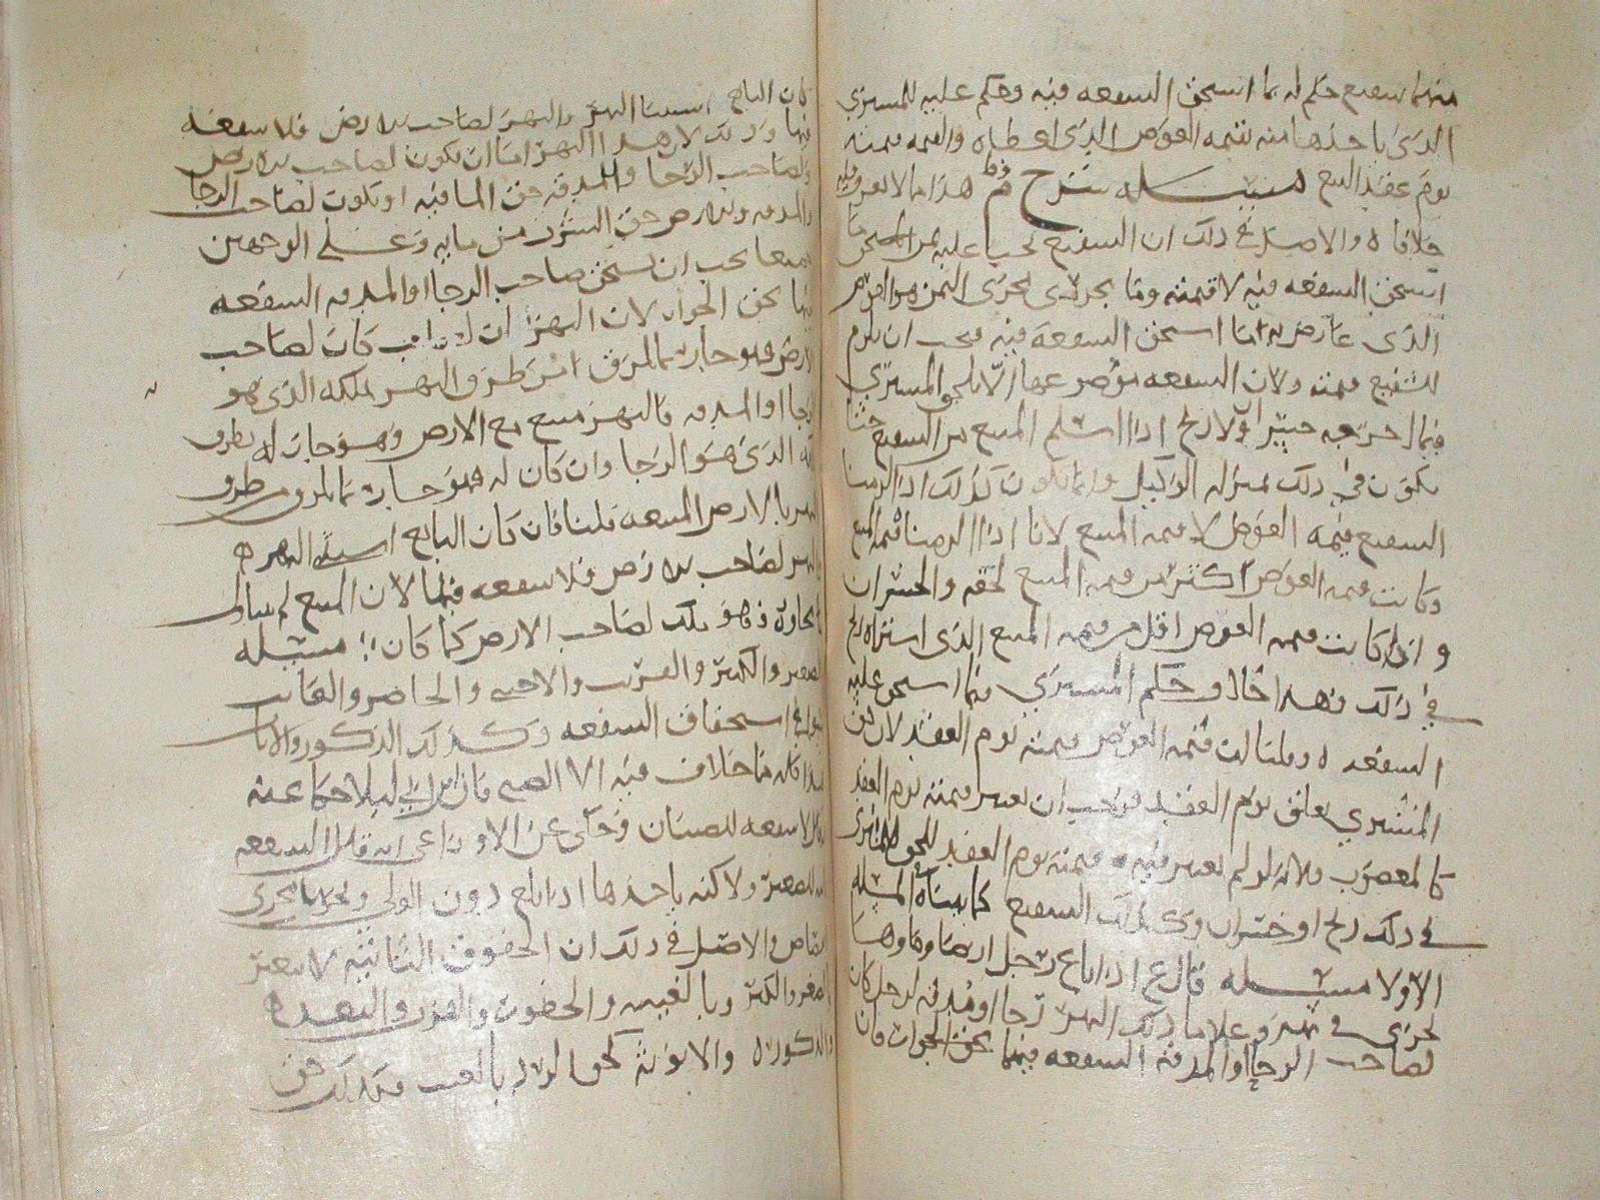 منهما شفيع حكم له بما استحق الشفعه فيه وحكم عليه للمشتري
الذي ياخذها منه بقيمه العوض الذي اعطاه والقيمه قيمته
يوم عقد البيع مسئله شرح هذا مما لا نعرف فيه
خلافا ه والاصل في ذلك ان الشفيع يجب عليه ثمن المستحق
استحق الشفعه فيه لا قيمته وما يجري مجرى الثمن هو العوض
الذي عاوض به انما استحق الشفعه فيه فيجب ان يلزم
للشفيع قيمته ولان الشفعه موضوعها الا يلحق المشتري
فيما خرج خسرا ولا ربح اذا سلم المبيع من الشفيع
يكون في ذلك بمنزله الوكيل وانما يكون كذلك اذا الزمنا
الشفيع قيمه العوض لا قيمه المبيع لانا اذا الزمنا قيمه المبيع
وكانت قيمه العوض اكثر من قيمه المبيع لحقه الخسران
واذا كانت قيمه العوض اقل من قيمه المبيع الذي اشتراه ربح
في ذلك فهذا خالف حكم المشتري فيما استحق عليه
الشفعه ه وقلنا ان قيمه العوض قيمته يوم العقد لان حق
المشتري تعلق يوم العقد فيجب ان نعتبر قيمته يوم العقد
كالمغصوب ولانه لو لم نعتبر فيه قيمته يوم العقد للحق المشتري
في ذلك ربح او خسران وكذلك الشفيع كما بيناه في المسئله
الاولا مسئله قال ع اذا باع رجل ارضا وماوها
يجري في نهر وعلا ما ذلك النهر رحا او مدقه لرجل كان
لصاحب الرحا او المدقه الشفعه فيها بحق الجوار فان
كان البايع استثنا النهر والنهر لصاحب الارض فلا شفعه
فيها وذلك لان هذا النهر اما ان يكون لصاحب الارض
ولصاحب الرحا والمدقه حق الما فيه او يكون لصاحب الرحا
والمدقه وللارض حق الشرب من مايه وعلى الوجهين
جميعا يجب ان يستحق صاحب الرحا او المدقه الشفعه
فيها بحق الجوار لان النهر ان كان لصاحب
الارض فهو جار بالمرق النهر بملكه الذي هو
الرحا او المدقه فالنهر مبيع مع الارض وهو جار له بطرف
الذي هو الرحا وان كان له فهو جار بالمرق من طرف
النهر بالارض المبيعه قلنا فان كان البايع استثنى النهر ه
والنهر لصاحب الارض فلا شفعه فيها لان المبيع لم يتناول
ما يجاوره فهو ملك لصاحب الارض كما كان مسئله
الصغير والكبير والقريب والاجنبي والحاضر والغايب
سوا في استحقاق الشفعه وكذلك الذكور والاناث
هذا كله مما خلاف فيه الا الصبي فان ابن ابي ليلا حكا عنه
ان لا شفعه للصبيان وحكي عن الاوزاعي انه قال الشفعه
للصغير ولاكنه ياخذها اذا بلغ دون الولي
والاصل في ذلك ان الحقوق الثابته لا تعتبر
بالصغر والكبر وبالغيبه والحضور والقرب والبعد ه
والذكوره والانوثه كحق الرد بالعيب فكذلك حق